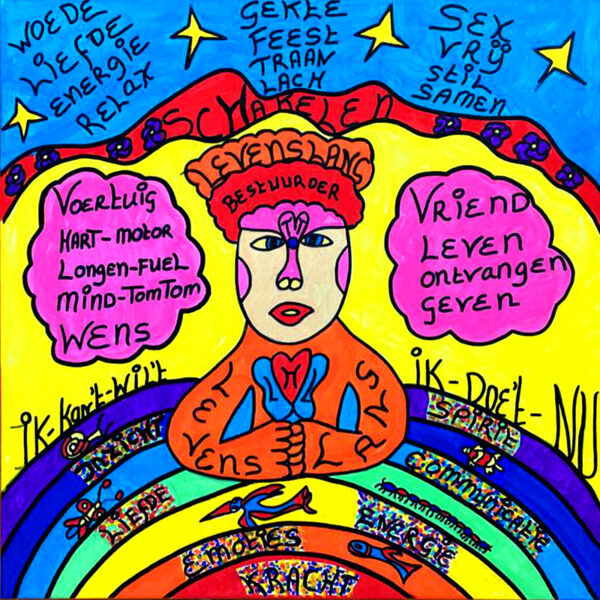 WOEDE
LIEFDE
ENERGIE
RELAX
GEKTE
FEEST
TRAAN
LACH
SEX
VRIJ
STIL
SAMEN
SCHAKELEN
LEVENSLANG
BESTUURDER
VOERTUIG
HART-MOTOR
LONGEN-FUEL
MIND-TOMTOM
WENS
VRIEND
LEVEN
ONTVANGEN
GEVEN
IK-KAN'T-WIL'T
IK-DOE'T-NU
LEVENS
LANG
INZICHT
SPIRIT
LIEFDE
COMMUNICATIE
EMOTIES
ENERGIE
KRACHT